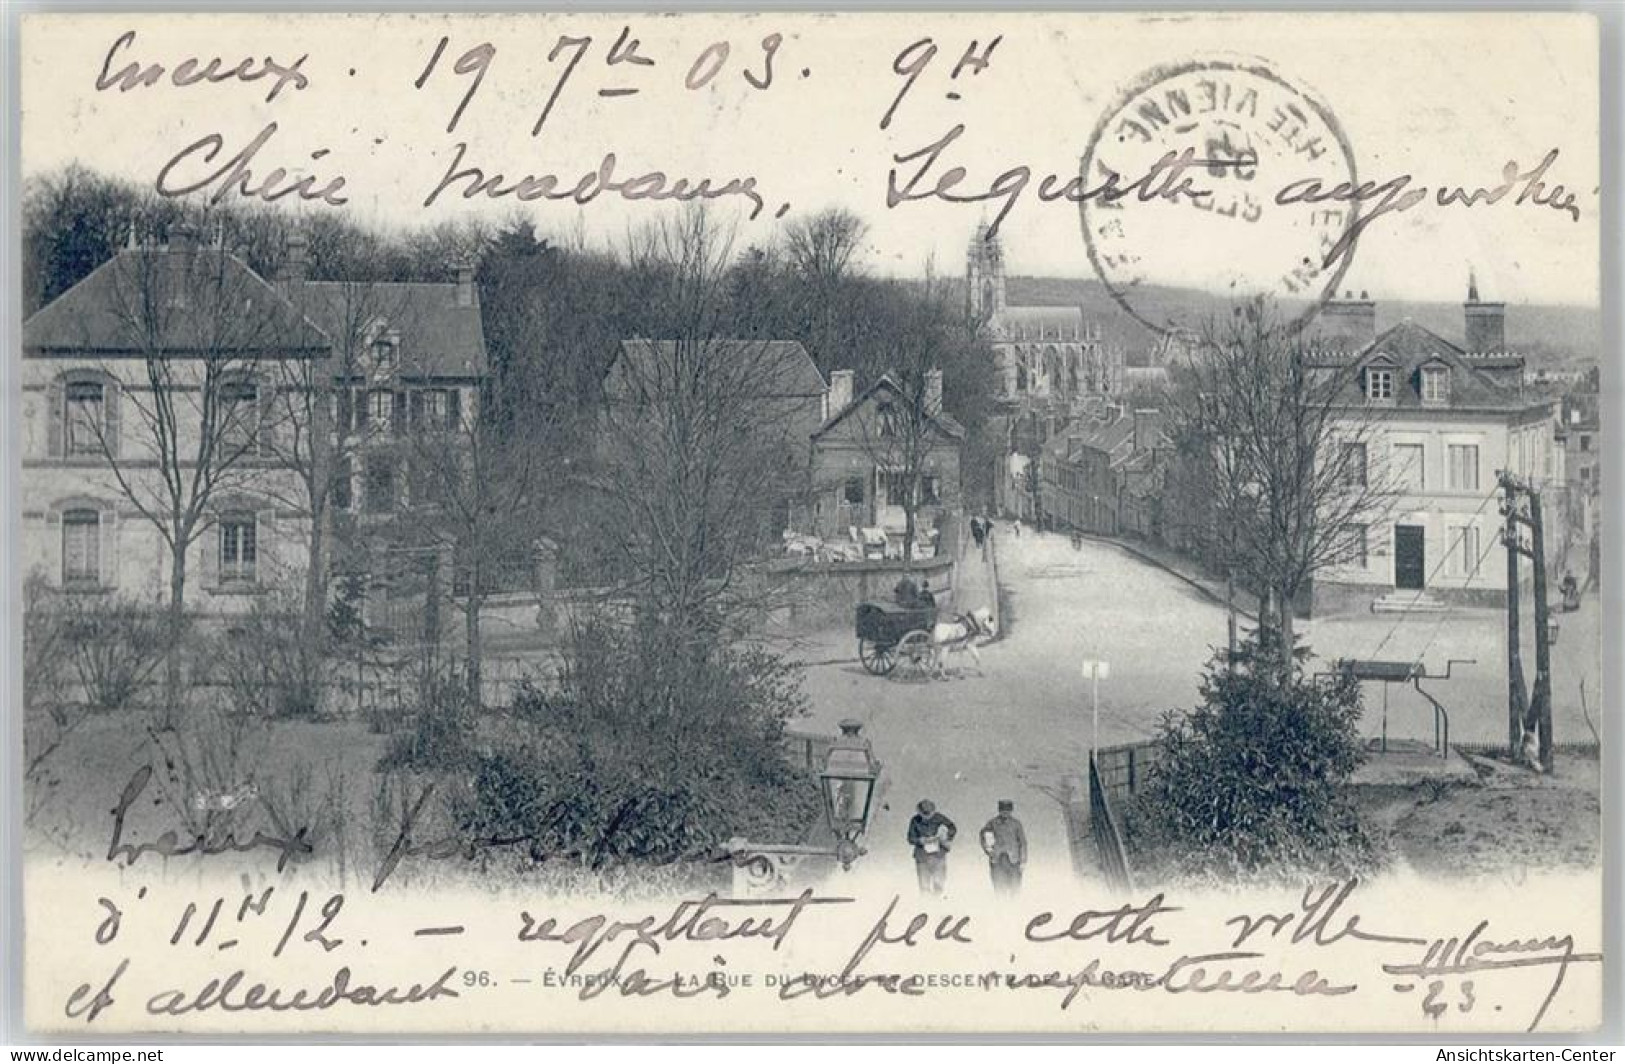 Evreux. 19 7bre 03. 9H
Chère Madame, Je quitte aujourd'hui
HTE VIENNE
Evreux par le train
d' 11H 1/2. - regrettant peu cette ville
et attendant Paris avec impatience
96. — ÉVREUX. — LA RUE DU LYCÉE ET DESCENTE DE LA GARE.
23.
delcampe.net
Ansichtskarten-Center